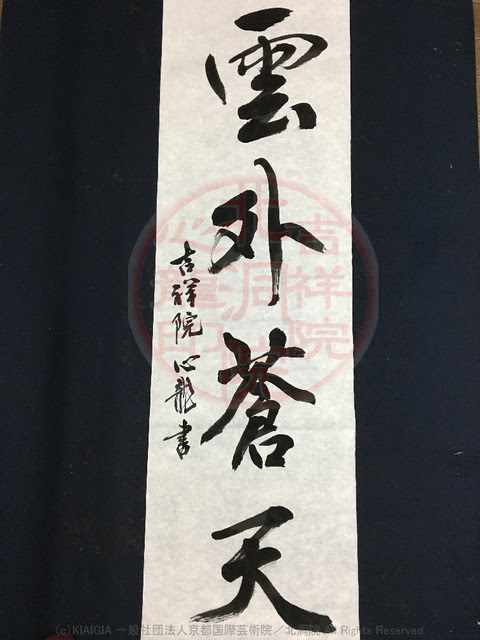 雲外蒼天
吉祥院心龍書
(c)KIAIGIA 一般社団法人京都国際芸術院／北洞院 All Rights Reserved.